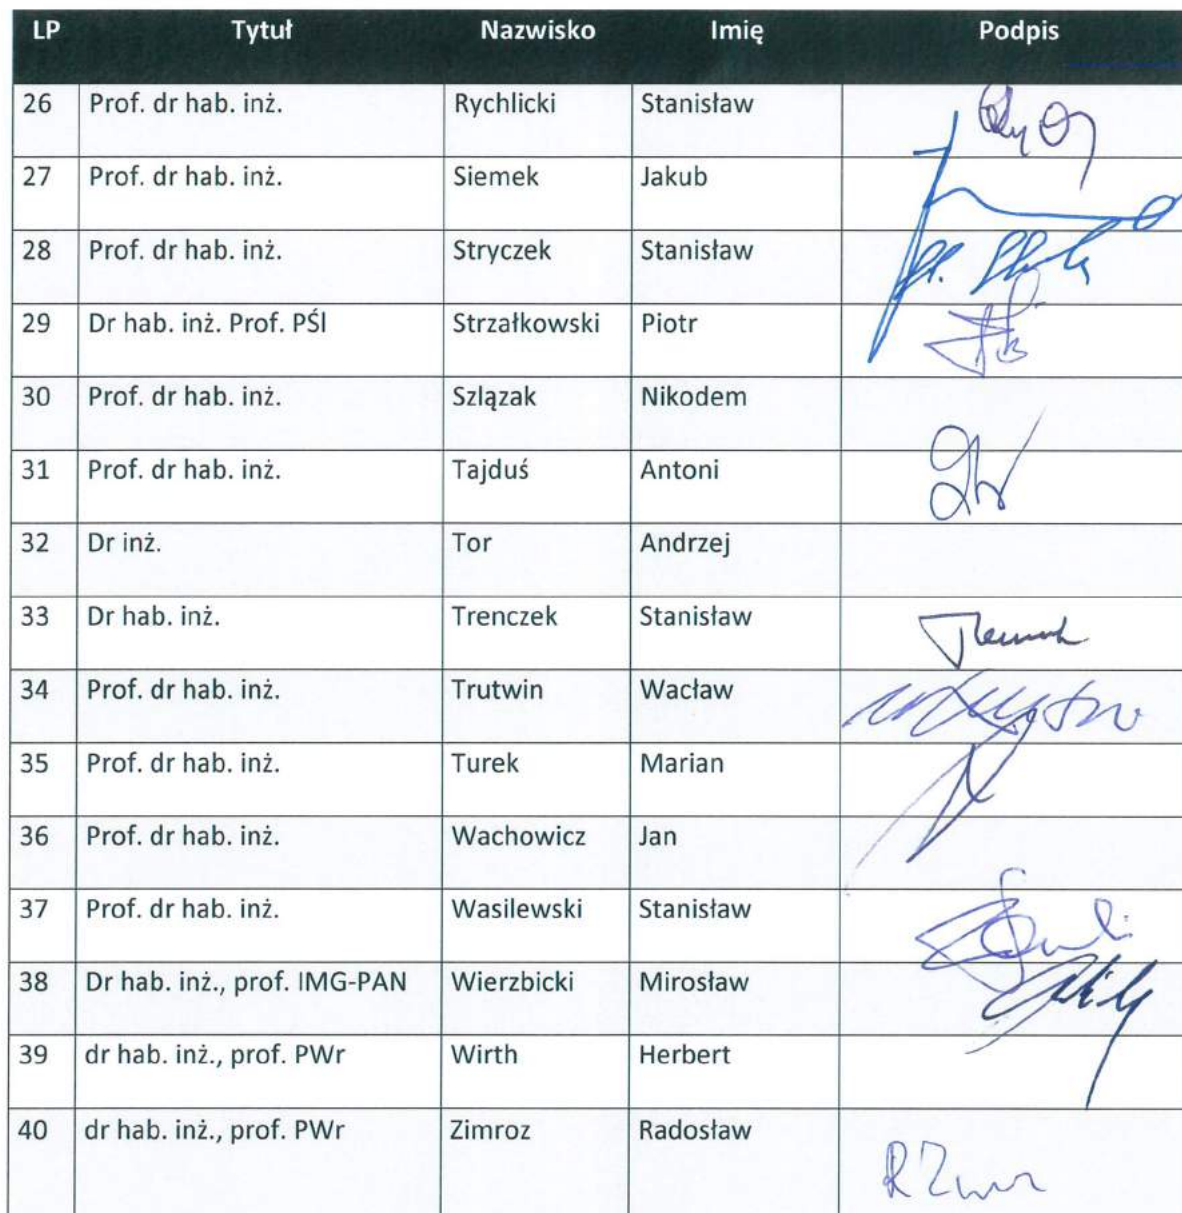 LP Tytuł Nazwisko Imię Podpis
26 Prof. dr hab. inż. Rychlicki Stanisław
27 Prof. dr hab. inż. Siemek Jakub
28 Prof. dr hab. inż. Stryczek Stanisław
29 Dr hab. inż. Prof. PŚl Strzałkowski Piotr
30 Prof. dr hab. inż. Szlązak Nikodem
31 Prof. dr hab. inż. Tajduś Antoni
32 Dr inż. Tor Andrzej
33 Dr hab. inż. Trenczek Stanisław
34 Prof. dr hab. inż. Trutwin Wacław
35 Prof. dr hab. inż. Turek Marian
36 Prof. dr hab. inż. Wachowicz Jan
37 Prof. dr hab. inż. Wasilewski Stanisław
38 Dr hab. inż., prof. IMG-PAN Wierzbicki Mirosław
39 dr hab. inż., prof. PWr Wirth Herbert
40 dr hab. inż., prof. PWr Zimroz Radosław